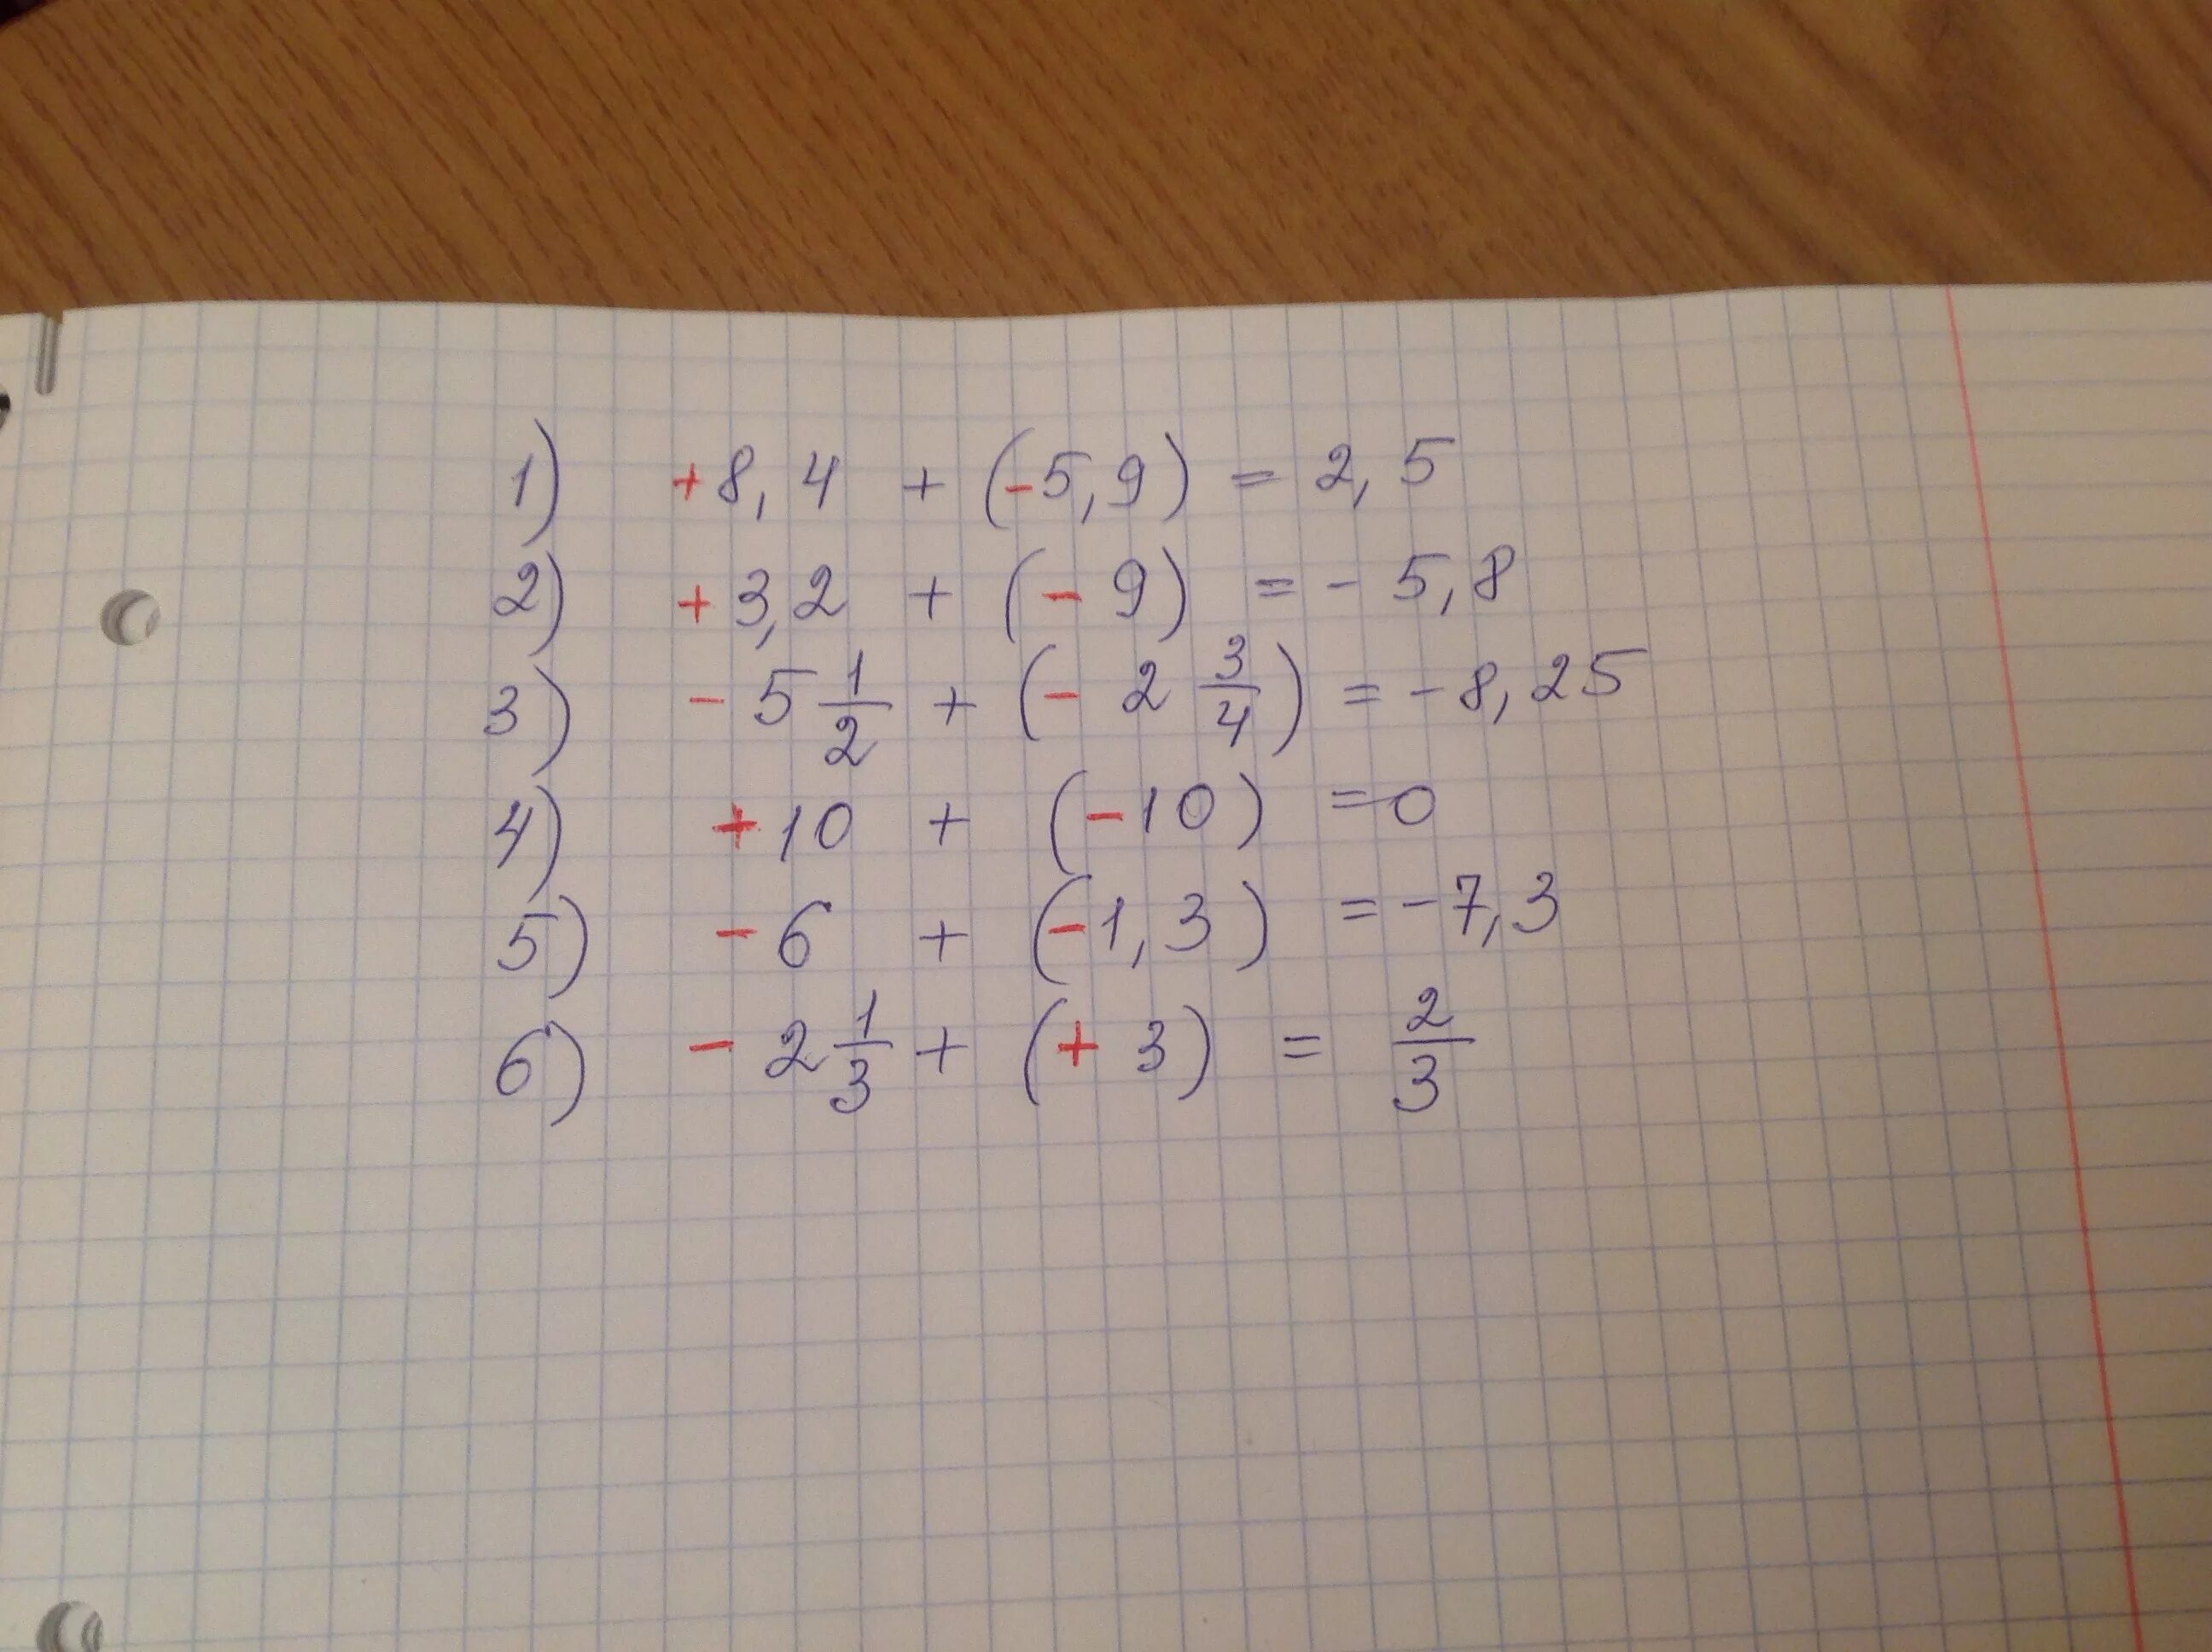 1) +8,4 + (-5,9) = 2,5
2) +3,2 + (- 9) = - 5,8
3) - 5 1/2 + (- 2 3/4) = - 8,25
4) +10 + (-10) = 0
5) - 6 + (-1,3) = - 7,3
6) - 2 1/3 + (+ 3) = 2/3